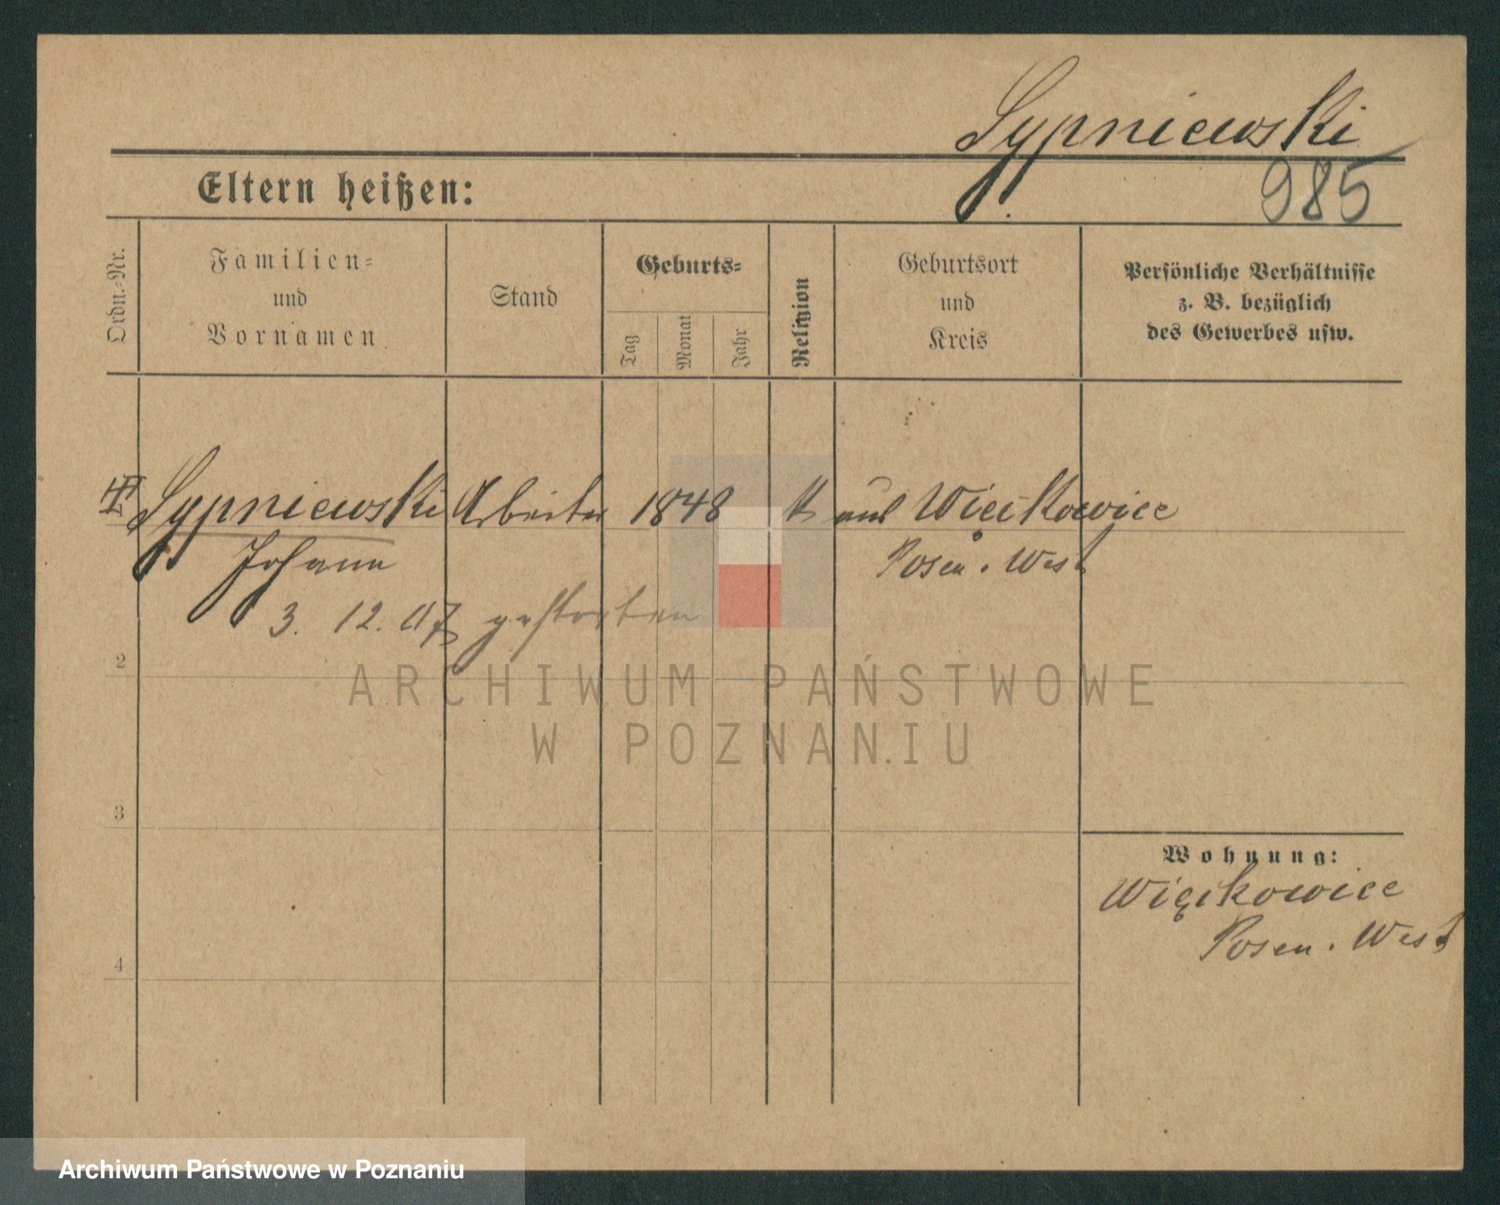 Sypniewski
Eltern heißen:
985
Ordn.-Nr.
Familien-
und
Vornamen
Stand
Geburts-
Tag
Monat
Jahr
Religion
Geburtsort
und
Kreis
Persönliche Verhältnisse
z. B. bezüglich
des Gewerbes usw.
Sypniewski Arbeiter 1848 K aus Więckowice
Johann
Posen. West
3. 12. 07 gestorben
2
3
4
Wohnung:
Więckowice
Posen. West
ARCHIWUM PAŃSTWOWE
W POZNANIU
Archiwum Państwowe w Poznaniu